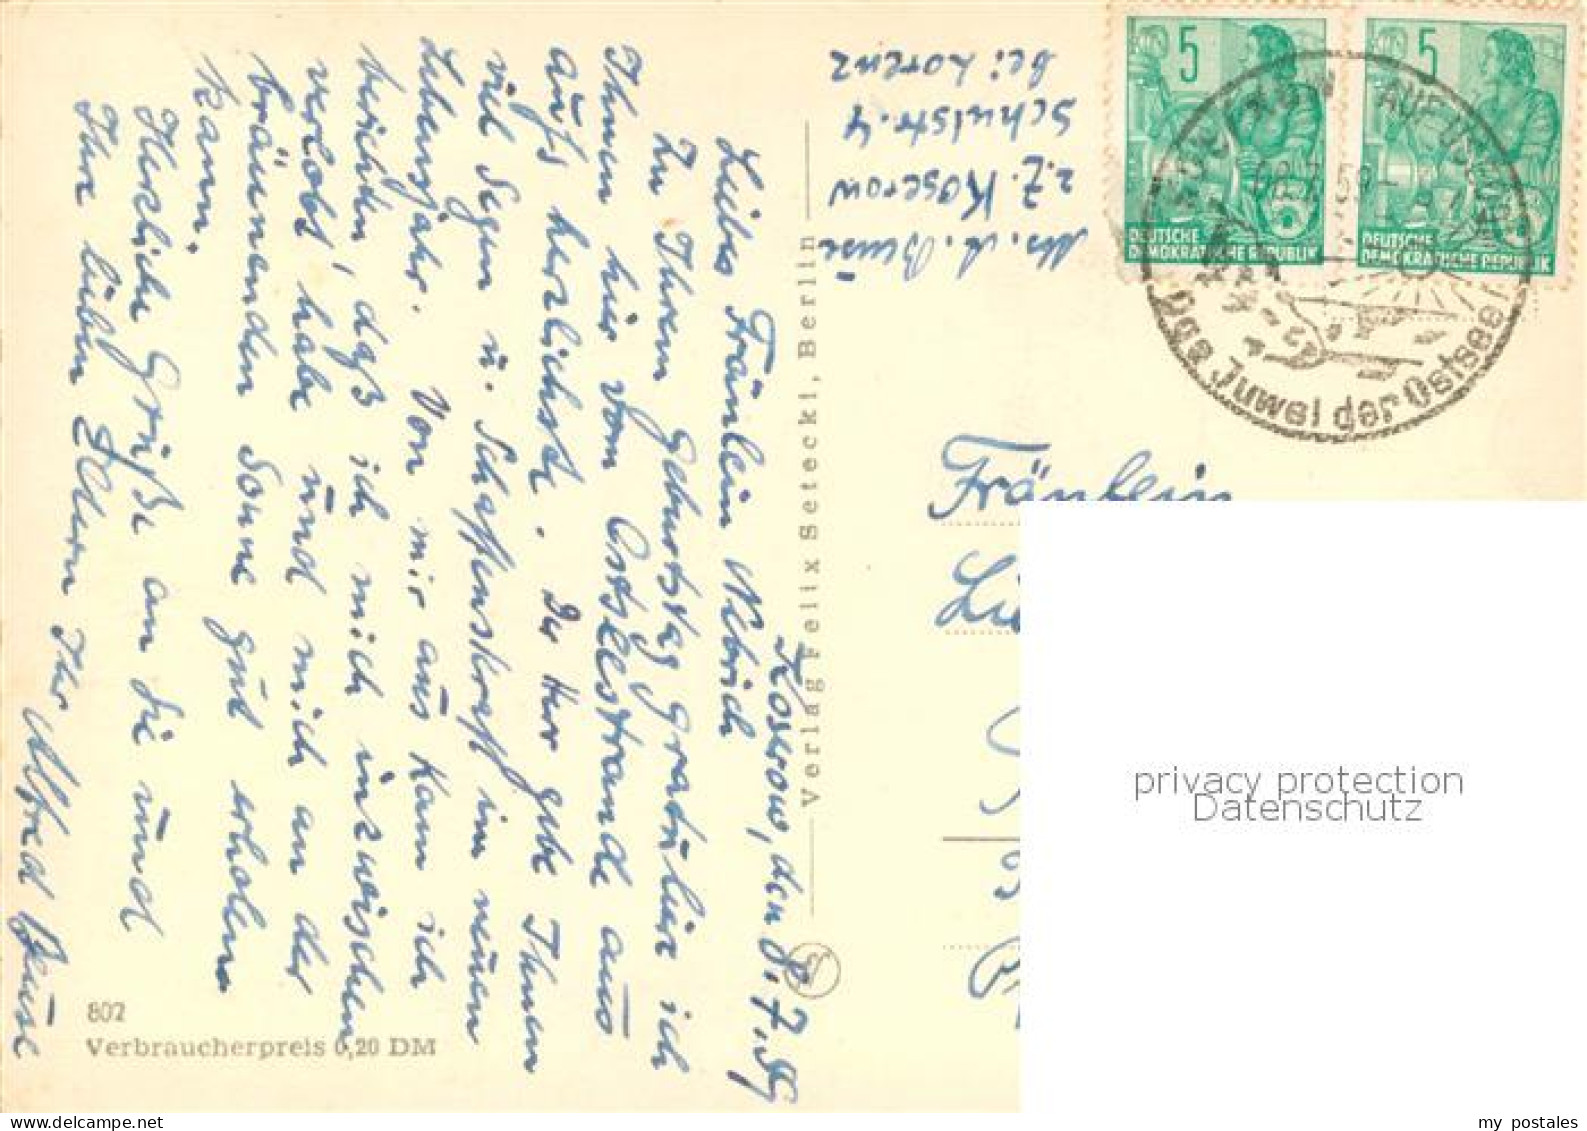 Koserow, den 8.7.59
Liebes Fräulein Nebrich
Zu Ihrem Geburtstag gratuliere ich
Ihnen hier vom Ostseestrande aus
aufs herzlichste. Der Herr gebe Ihnen
viel Segen u. Schaffenskraft im neuen
Lebensjahr. Von mir aus kann ich
berichten, daß ich mich inzwischen
verlobt habe und mich an der
bräunenden Sonne gut erholen
kann.
Herzliche Grüße an Sie und
Ihre lieben Eltern Ihr Alfred Beuse
802
Verbraucherpreis 0,20 DM
Verlag Felix Setecki, Berlin
Abs. A. Beuse
z.Z. Koserow
Schulstr. 4
bei Lorenz
5
DEUTSCHE
DEMOKRATISCHE REPUBLIK
5
DEUTSCHE
DEMOKRATISCHE REPUBLIK
AUF USEDOM
Das Juwel der Ostsee
Fräulein
privacy protection
Datenschutz
www.delcampe.net
my_postales